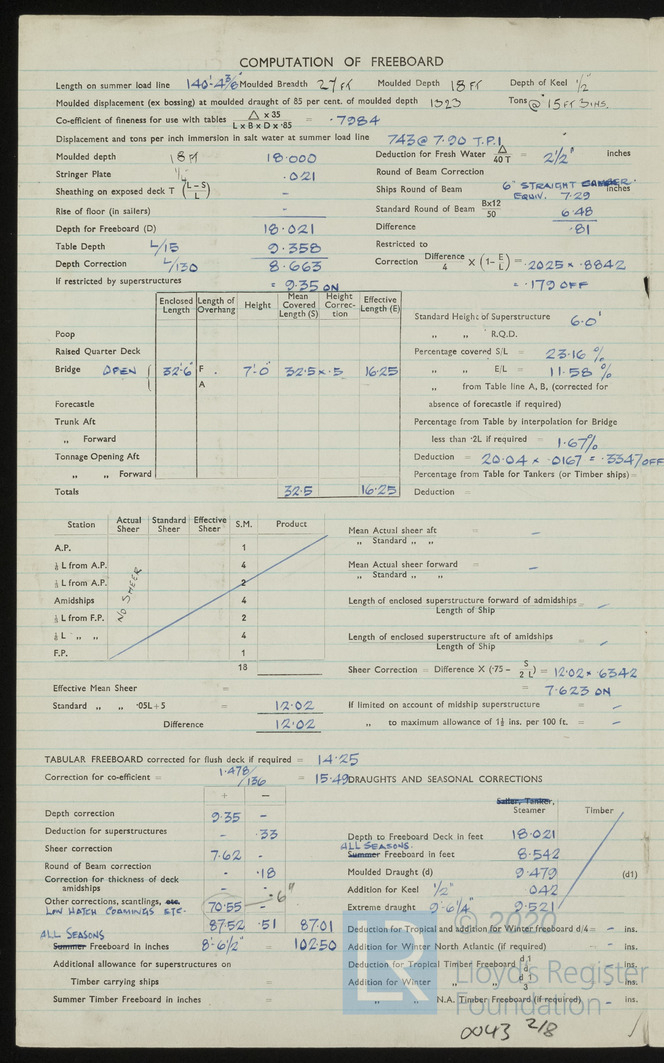 COMPUTATION OF FREEBOARD
Length on summer load line 140'-4 3/8" Moulded Breadth 27 FT Moulded Depth 18 FT Depth of Keel 1/2"
Moulded displacement (ex bossing) at moulded draught of 85 per cent. of moulded depth 1323 Tons @ 15 FT 3 INS.
Co-efficient of fineness for use with tables △ x 35 / L x B x D x ·85 = ·7984
Displacement and tons per inch immersion in salt water at summer load line 743 @ 7.90 T.P.I
Moulded depth 18 FT 18·000
Stringer Plate 1/4" ·021
Sheathing on exposed deck T (L–S / L) –
Rise of floor (in sailers) –
Depth for Freeboard (D) 18·021
Table Depth L/15 9·358
Depth Correction L/130 8·663
If restricted by superstructures = 9·35 ON
Deduction for Fresh Water △ / 40 T = 2 1/2" inches
Round of Beam Correction
Ships Round of Beam 6" STRAIGHT CAMBER. inches
EQUIV. 7·29
Standard Round of Beam Bx12 / 50 6·48
Difference ·81
Restricted to
Correction Difference / 4 X (1– E / L) = ·2025 x ·8842
= ·179 OFF
Enclosed Length Length of Overhang Height Mean Covered Length (S) Height Correc- tion Effective Length (E)
Poop
Raised Quarter Deck
Bridge OPEN 32'·6" F . 7'-0" 32·5 x ·5 16·25
A
Forecastle
Trunk Aft
„ Forward
Tonnage Opening Aft
„ „ Forward
Totals 32·5 16·25
Standard Height of Superstructure 6·0'
„ „ R.Q.D.
Percentage covered S/L = 23·16 %
„ „ E/L = 11·58 %
„ from Table line A, B, (corrected for
absence of forecastle if required)
Percentage from Table by interpolation for Bridge
less than ·2L if required = 1·67%
Deduction = 20·04 x ·0167 = ·3347 OFF
Percentage from Table for Tankers (or Timber ships) =
Deduction =
Station Actual Sheer Standard Sheer Effective Sheer S.M. Product
A.P. 1
⅙ L from A.P. 4
⅓ L from A.P. 2
Amidships 4
⅓ L from F.P. 2
⅙ L „ „ 4
F.P. 1
18
NO SHEER
Effective Mean Sheer =
Standard „ „ ·05L+5 = 12·02
Difference 12·02
Mean Actual sheer aft = –
„ Standard „ „
Mean Actual sheer forward = –
„ Standard „ „
Length of enclosed superstructure forward of admidships = –
Length of Ship
Length of enclosed superstructure aft of amidships = –
Length of Ship
Sheer Correction = Difference X (·75 – S / 2 L) = 12·02 x ·6342
= 7·623 ON
If limited on account of midship superstructure = –
„ to maximum allowance of 1½ ins. per 100 ft. = –
TABULAR FREEBOARD corrected for flush deck if required = 14·25
Correction for co-efficient = 1·478 / 1·36 = 15·49
+ –
Depth correction 9·35 –
Deduction for superstructures – ·33
Sheer correction 7·62 –
Round of Beam correction - ·18
Correction for thickness of deck amidships - -
Other corrections, scantlings, etc. 70·55 – 6"
LOW HATCH COAMINGS ETC.
87·52 ·51 87·01
ALL SEASONS
Summer Freeboard in inches 8'-6 1/2" = 102·50
Additional allowance for superstructures on
Timber carrying ships =
Summer Timber Freeboard in inches =
DRAUGHTS AND SEASONAL CORRECTIONS
Sailer, Tanker, Steamer Timber
Depth to Freeboard Deck in feet 18·021
ALL SEASONS
Summer Freeboard in feet 8·542
Moulded Draught (d) 9·479 (d1)
Addition for Keel 1/2" ·042
Extreme draught 9'-6 1/4" 9·521
Deduction for Tropical and addition for Winter freeboard d/4 = – ins.
Addition for Winter North Atlantic (if required) – ins.
Deduction for Tropical Timber Freeboard d1 / 4 – ins.
Addition for Winter „ „ d1 / 3 – ins.
„ „ N.A. Timber Freeboard (if required) – ins.
© 2020
LR Lloyd's Register
Foundation
0043 2/8